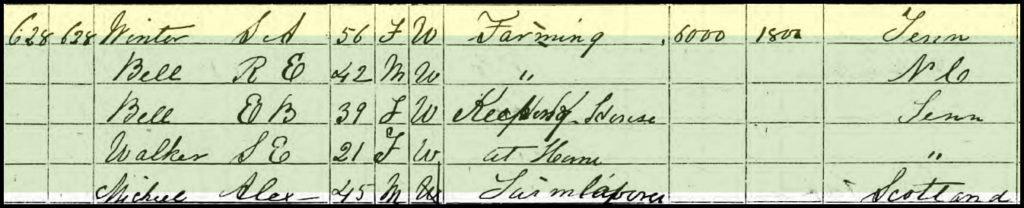 628 628 Winter S A 56 F W Farming 6000 1800 Tenn
Bell R E 42 M W " N C
Bell E B 39 F W Keeping House Tenn
Walker S E 21 F W at Home "
Alex 45 M W Farm laborer Scotland